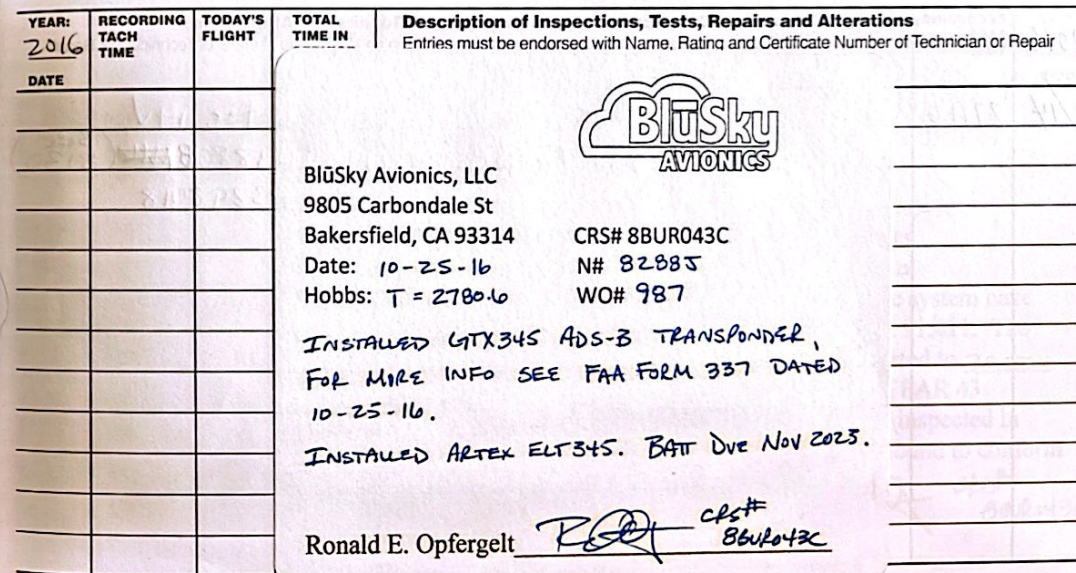 YEAR:
2016
DATE
RECORDING
TACH
TIME
TODAY'S
FLIGHT
TOTAL
TIME IN
Description of Inspections, Tests, Repairs and Alterations
Entries must be endorsed with Name, Rating and Certificate Number of Technician or Repair
BlūSky
AVIONICS
BlūSky Avionics, LLC
9805 Carbondale St
Bakersfield, CA 93314 CRS# 8BUR043C
Date: 10-25-16 N# 8288J
Hobbs: T = 2780.6 WO# 987
INSTALLED GTX345 ADS-B TRANSPONDER,
FOR MORE INFO SEE FAA FORM 337 DATED
10-25-16.
INSTALLED ARTEX ELT345. BATT DUE NOV 2023.
CRS#
Ronald E. Opfergelt 8BUR043C